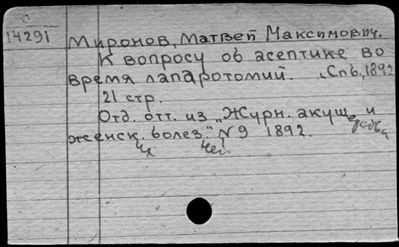 14291
Миронов, Матвей Максимович.
К вопросу об асептике во
время лапаротомий. Спб, 1892
21 стр.
Отд. отт. из "Журн. акуш. и
женск. болез." N9 1892.